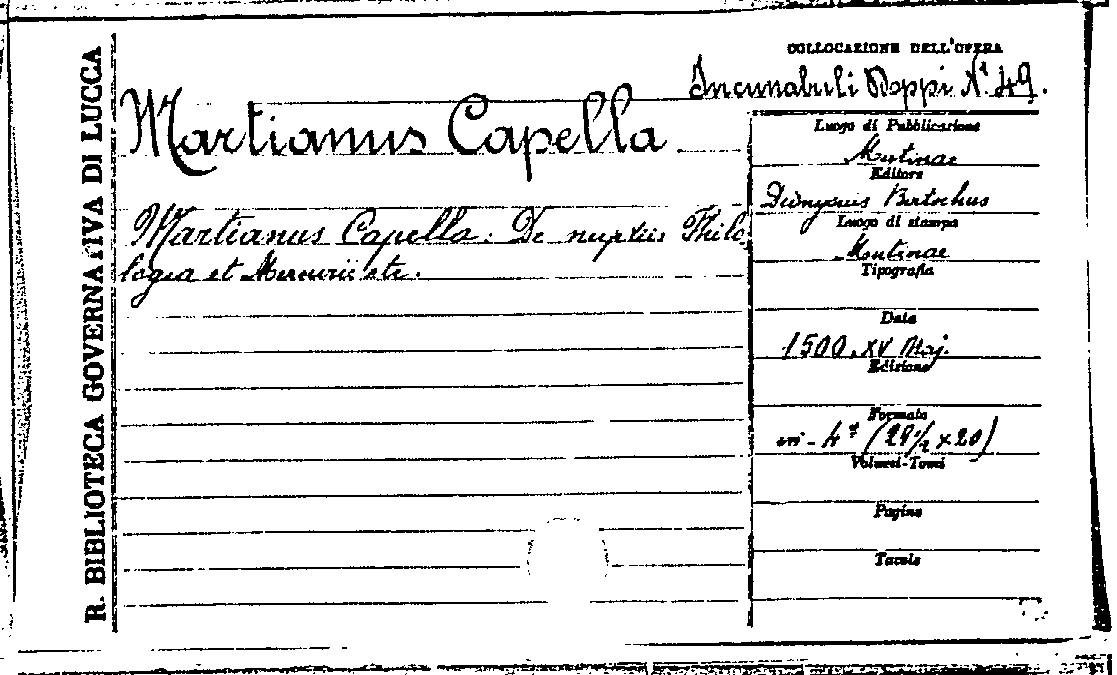 R. BIBLIOTECA GOVERNATIVA DI LUCCA
COLLOCAZIONE DELL'OPERA
Incunabuli Doppi N.° 49.
Martianus Capella
Martianus Capella: De nuptiis Philo-
logia et Mercurii etc.
Luogo di Pubblicazione
Mutinae
Editore
Dionysius Bertochus
Luogo di stampa
Mutinae
Tipografia
Data
1500. XV Maj.
Edizione
Formato
in-4° (29½ x 20)
Volumi-Tomi
Pagine
Tavole